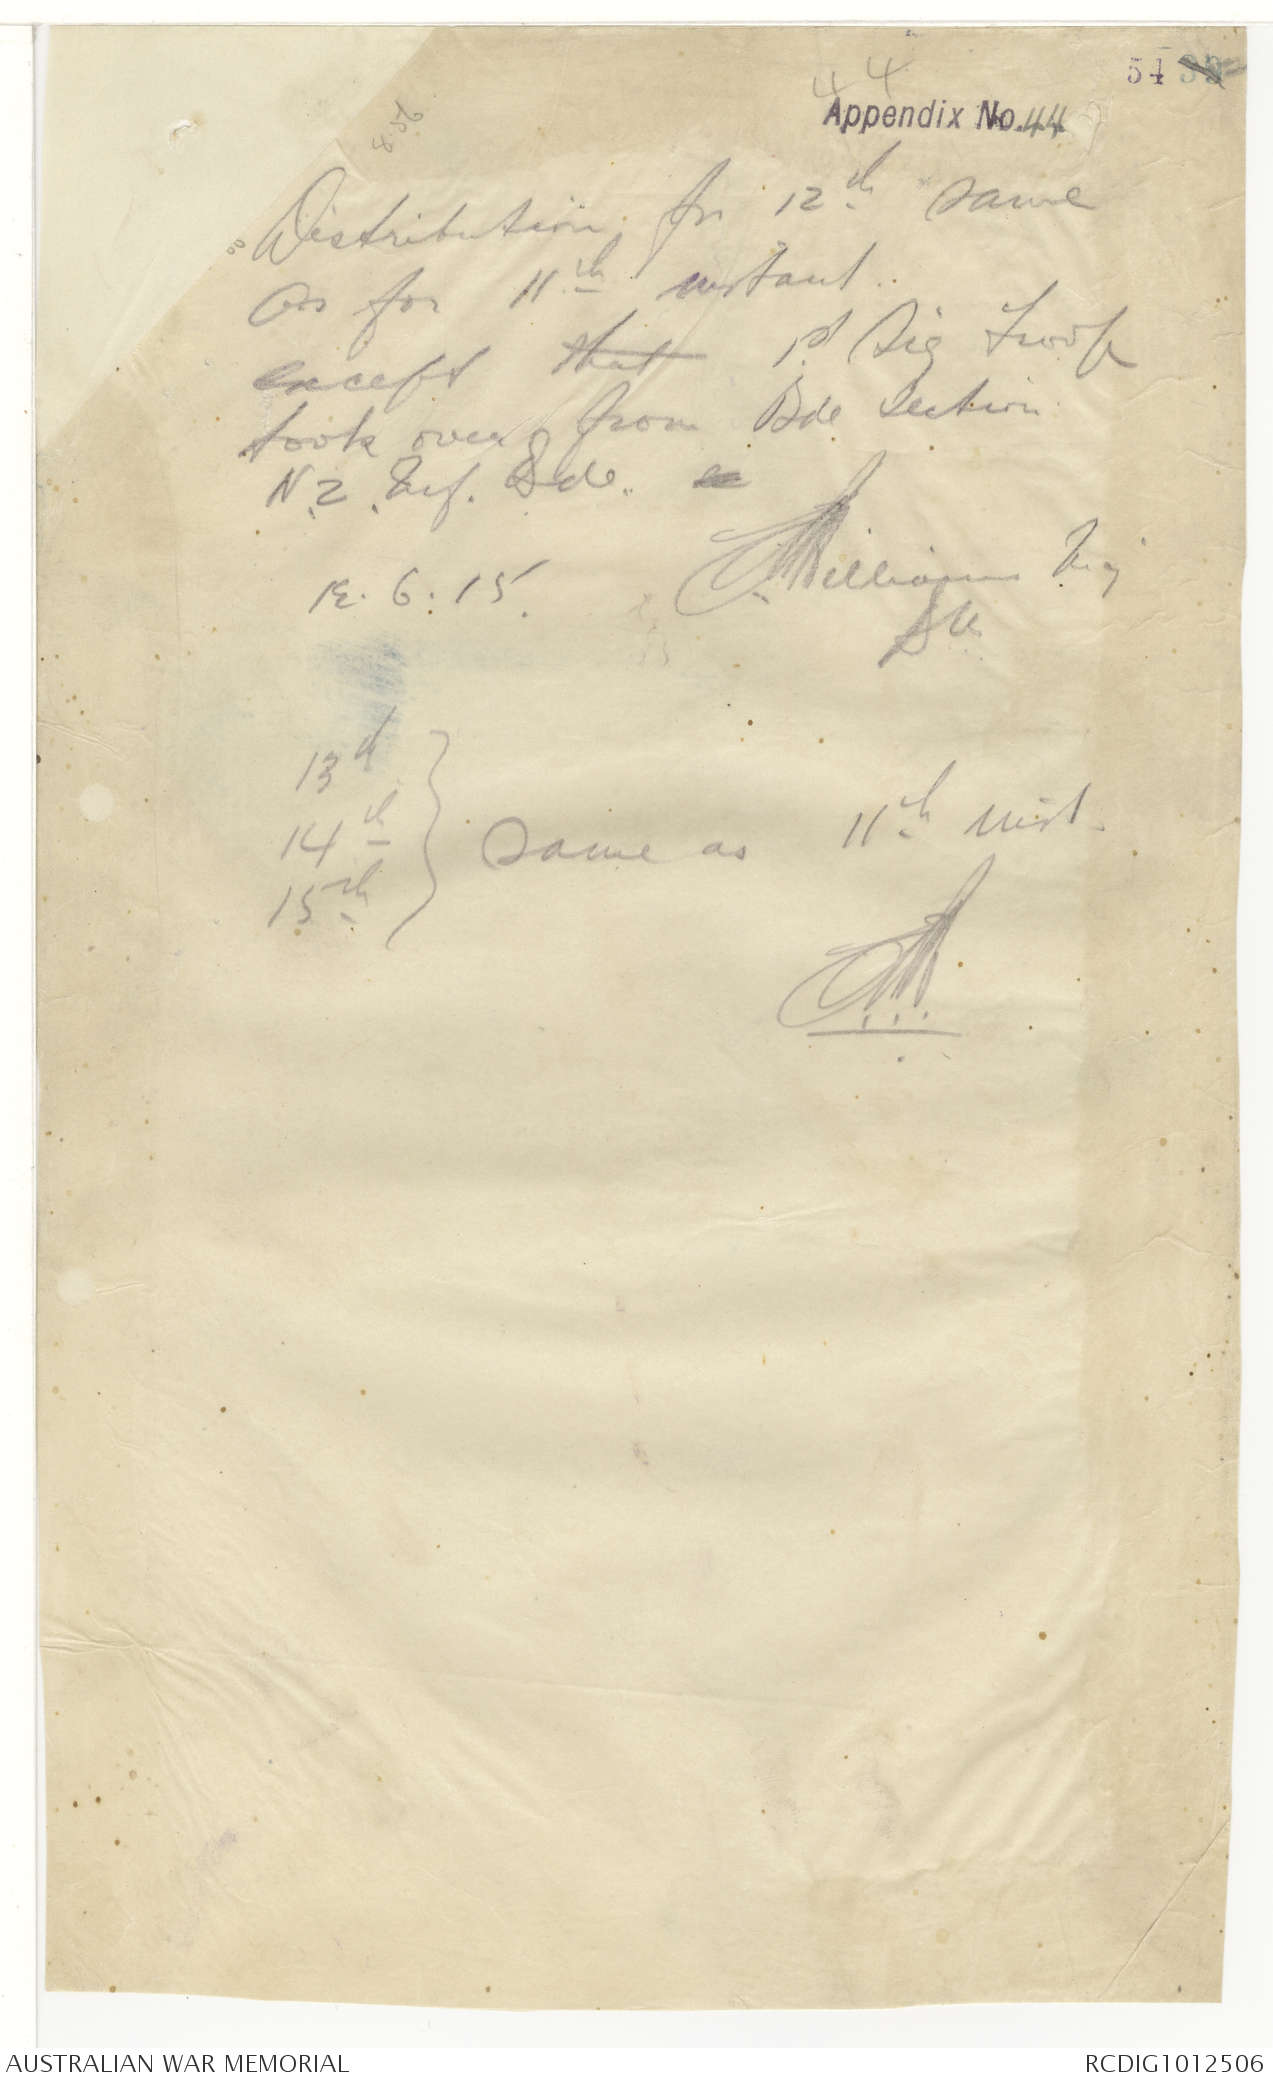 54
44
Appendix No. 44
8.56
Distribution for 12th same
as for 11th instant..
except that 1st Sig Troop
took over from Bde Section
N.Z. Inf. Bde.
Williams Maj
12.6.15.
13th
14th
15th
same as 11th inst.
AUSTRALIAN WAR MEMORIAL
RCDIG1012506